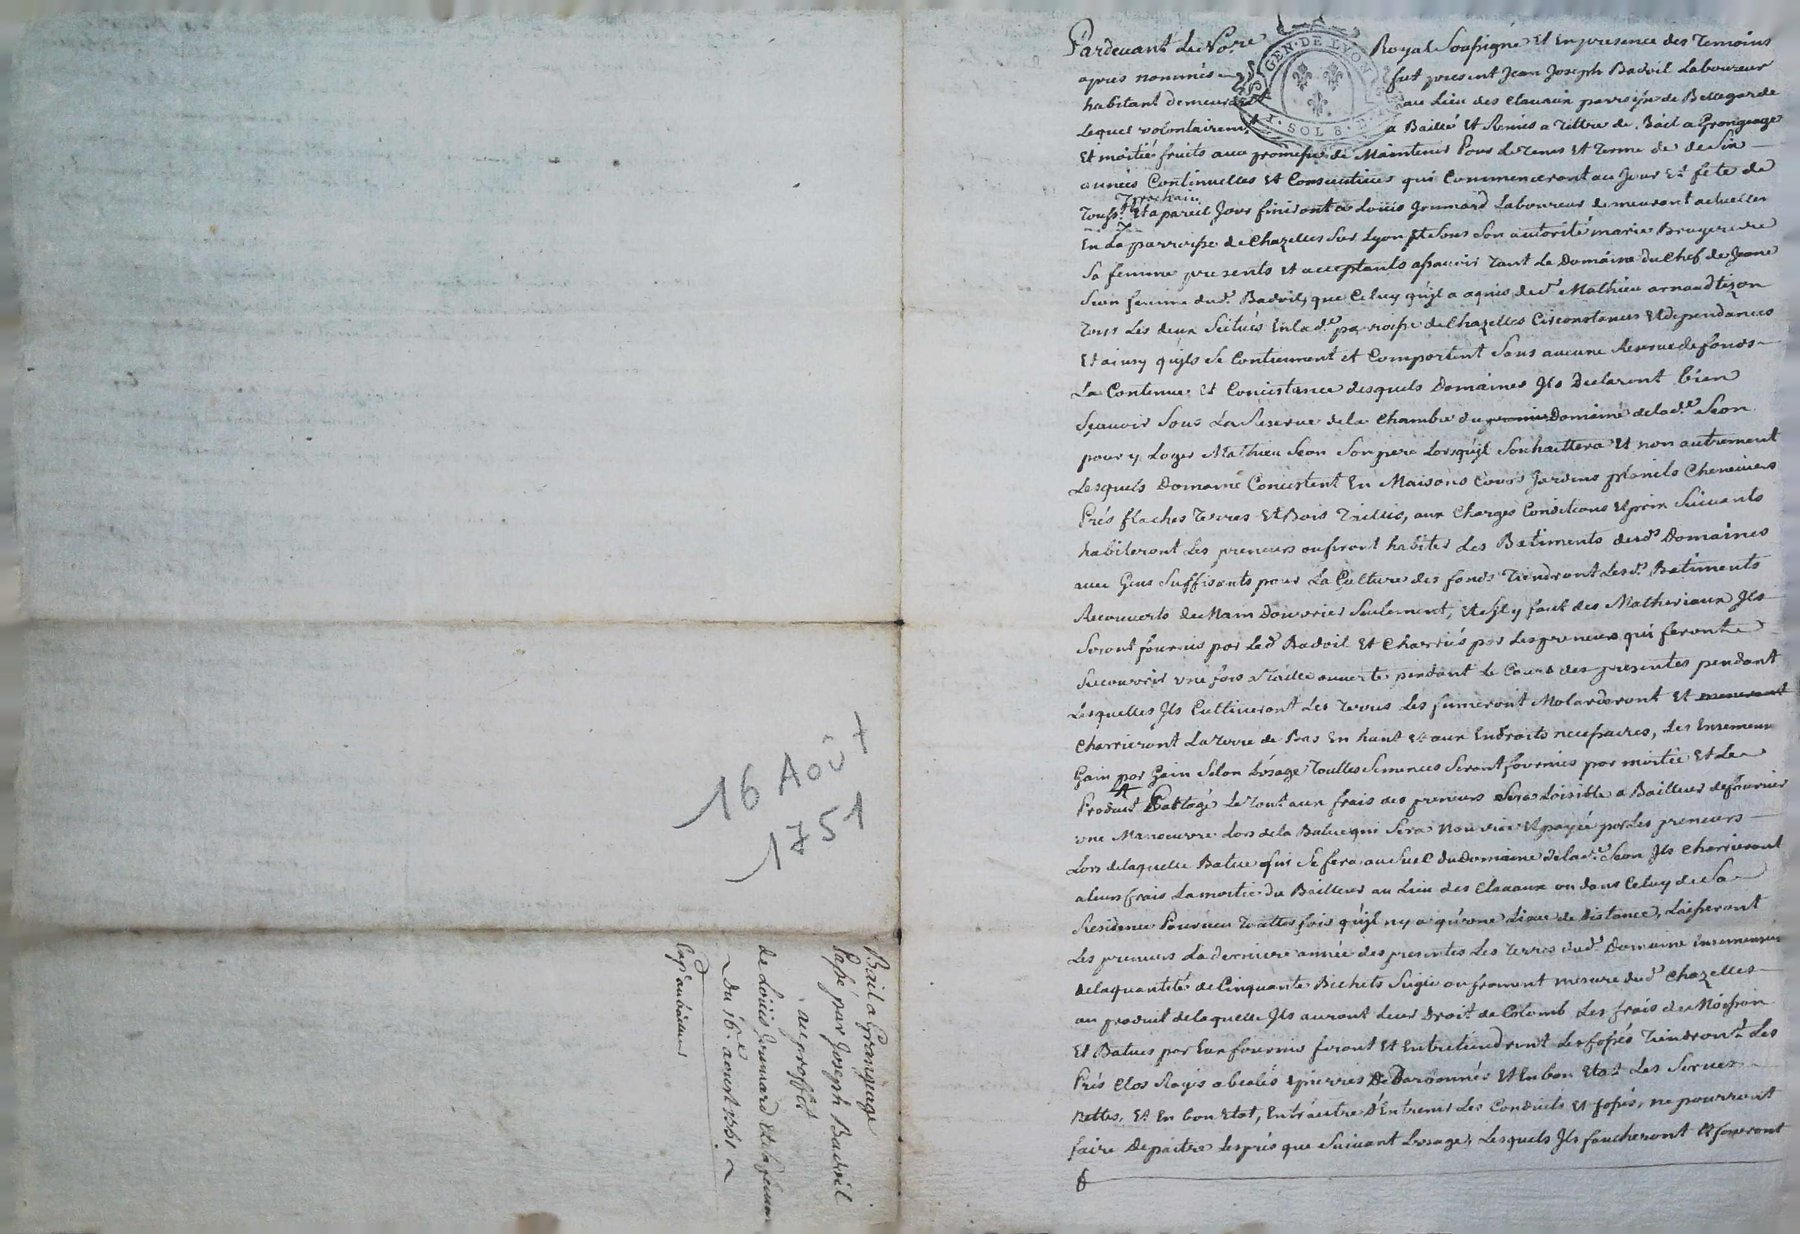 Pardevant Le No.re Royal Soussigné Et En presence des Temoins
apres nommés fut present Jean Joseph Badoil Laboureur
habitant demeurant au Lieu des Clavaux parroisse de Bellegarde
Lequel volontairem.t a Baillé Et Remis a Tiltre de Bail a Grangeage
Et moitié fruits avec promesse de Maintenir Pour Le Tems Et Terme de de Six
années Continuelles Et Consecutives qui Commenceront au Jour Et fete de
prochain
Touss.t Et a pareil Jour finiront a Loüis Joumard Laboureur demeurant actuellem
En La parroisse de Chazelles Sur Lyon Et Sous Son autorité marie Bruyere
Sa femme presents Et acceptants assavoir Tant Le Domaine du Chef de Jeane
Seon femme dud.t Badoil, que Celuy qu'jl a aquis de S.r Mathieu arnaud tizon
Tous Les deux Scitués En lad.e parroisse de Chazelles Circonstances Et dependances
Et ainsy qu'jls Se Contiennent et Comportent Sans aucune Reserve de fonds
La Contenue Et Concistance desquels Domaines Jls Declarent bien
Sçavoir Sous La Reserve de la Chambre du premier Domaine de lad.e Seon
pour y Loger Mathieu Seon Son pere Lorsqu'jl Souhaittera Et non autrement
Lesquels Domaine Concistent En Maisons Cours Jardins Cheneviers
Prés flaches Terres Et Bois Taillis, aux Charges Conditions Et prix Suivants
habiteront Les preneurs ou feront habiter Les Batiments desd.s Domaines
avec Gens Suffisants pour La Culture des fonds Tiendront Lesd.s Batiments
Recouverts de Main Douvrier Seulement, Et S'jl y faut des Matheriaux Jls
Seront fournis par Led.t Badoil Et Charriés par Les preneurs qui feront
Recouvrir une fois a Taille ouverte pendant Le Cours des presentes pendant
Lesquelles Jls Cultiveront Les Terres Les fumeront Molarderont Et
Charrieront La Terre de Bas En haut Et aux Endroits necessaires, Les Ensemenc
Gain par Gain Selon L'usage Touttes Semences Seront fournies par moitié Et Le
Produit Partagé Le Tout aux frais des preneurs Sera Loisible a Bailleur de fournir
une Manoeuvre Lors de la Batue qui Sera Nourrie Et payée par Les preneurs
Lors de laquelle Batue qui Se fera au Suel du Domaine de lad.e Seon Jls Charrieront
a leurs frais La moitié du Bailleur au Lieu des Clavaux ou dans Celuy de Sa
Residence Pourveu Toutes fois qu'jl n'y a qu'une Lieue de Distance, Laisseront
Les preneurs La derniere année des presentes Les Terres dud.t Domaine
de la quantité de Cinquante Bichets Seigle ou froment mesure dud.t Chazelles
au produit de laquelle Jls auront Leur Droit de Colomb Les frais de Moisson
Et Batues par Eux fournis feront Et Entretiendront Les fossés Tiendront Les
Prés Clos Et En bon Etat Les Serves
Nettes, Et En bon Etat, Entr'autre d'Entrenir Les Conduits Et fossés, ne pourront
faire Depaitre Les prés que Suivant L'usage, Lesquels Jls faucheront Et feneront
GEN. DE LYON
1. SOL 8. D.
16 AOÛT
1751
Bail a Grangeage
Passé par Joseph Badoil
au proffit
de Loüis Joumard Et Sa femme
Du 16.e aoust 1751.